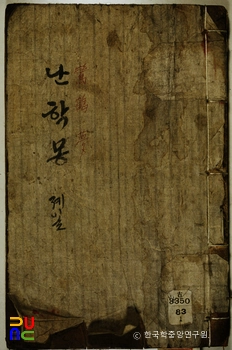 난학몽
뎨일
9350
63
UBC
© 한국학중앙연구원